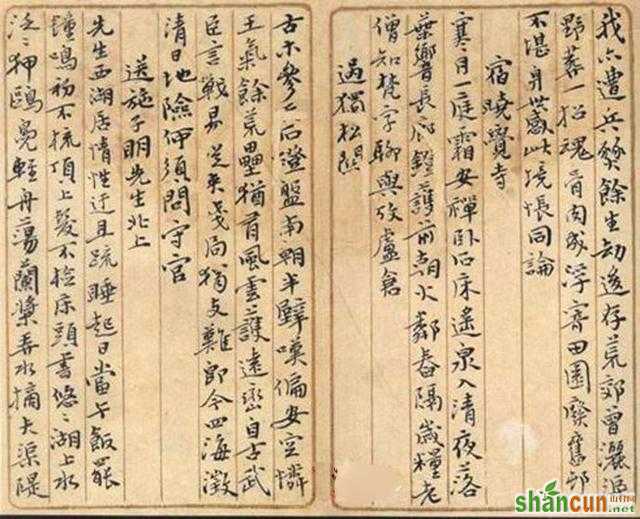 我亦遭兵燹餘生劫後存荒郊曾灑淚
野一招魂骨肉成浮寄田園廢舊邨
不堪身世感此境悵同論
宿曉覺寺
寒月一庭霜安禪卧石床遙泉入清夜落
葉響長廊鐙護前朝火鄰舂隔歲糧老
僧知梵字聊與攷盧倉
過獨松關
古木參天石磴盤南朝半壁嘆偏安空憐
王氣餘荒壘猶有風雲護遠巒自古武
臣言戰易從來局獨支難即今四海澂
清日地險何須問守官
送施子明先生北上
先生西湖居情性迂且疏睡起日當午飯罷
鐘鳴初不梳頂上髮不檢床頭書悠〻湖上水
泛〻狎鷗鳧輕舟蕩蘭槳春水摘大渠隄
shancun
山村网
.net